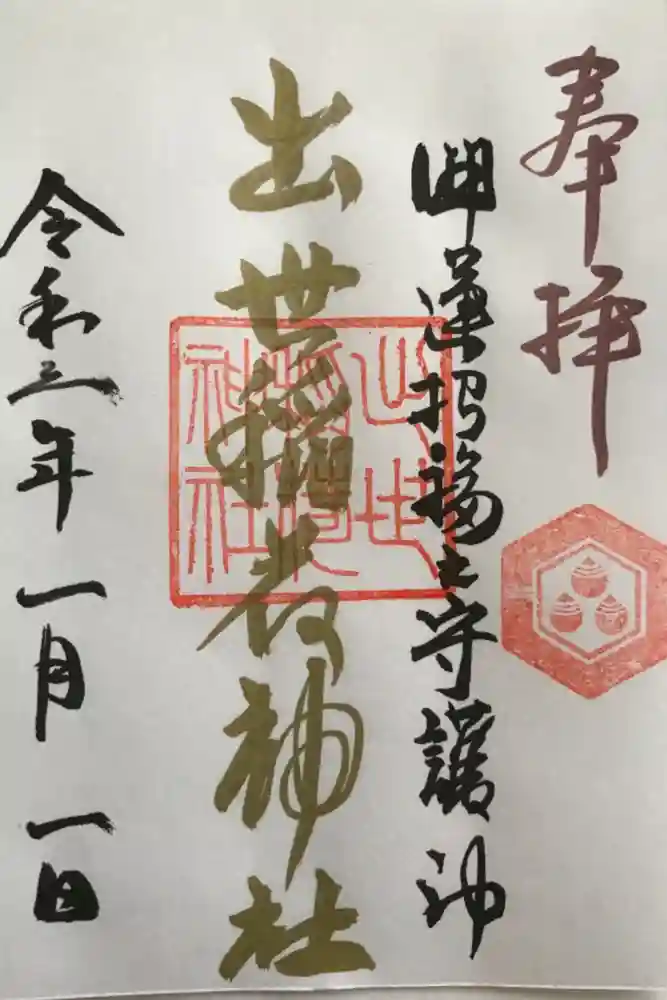 奉拝
開運招福之守護神
出世稲荷神社
出世稲荷神社
令和三年一月一日